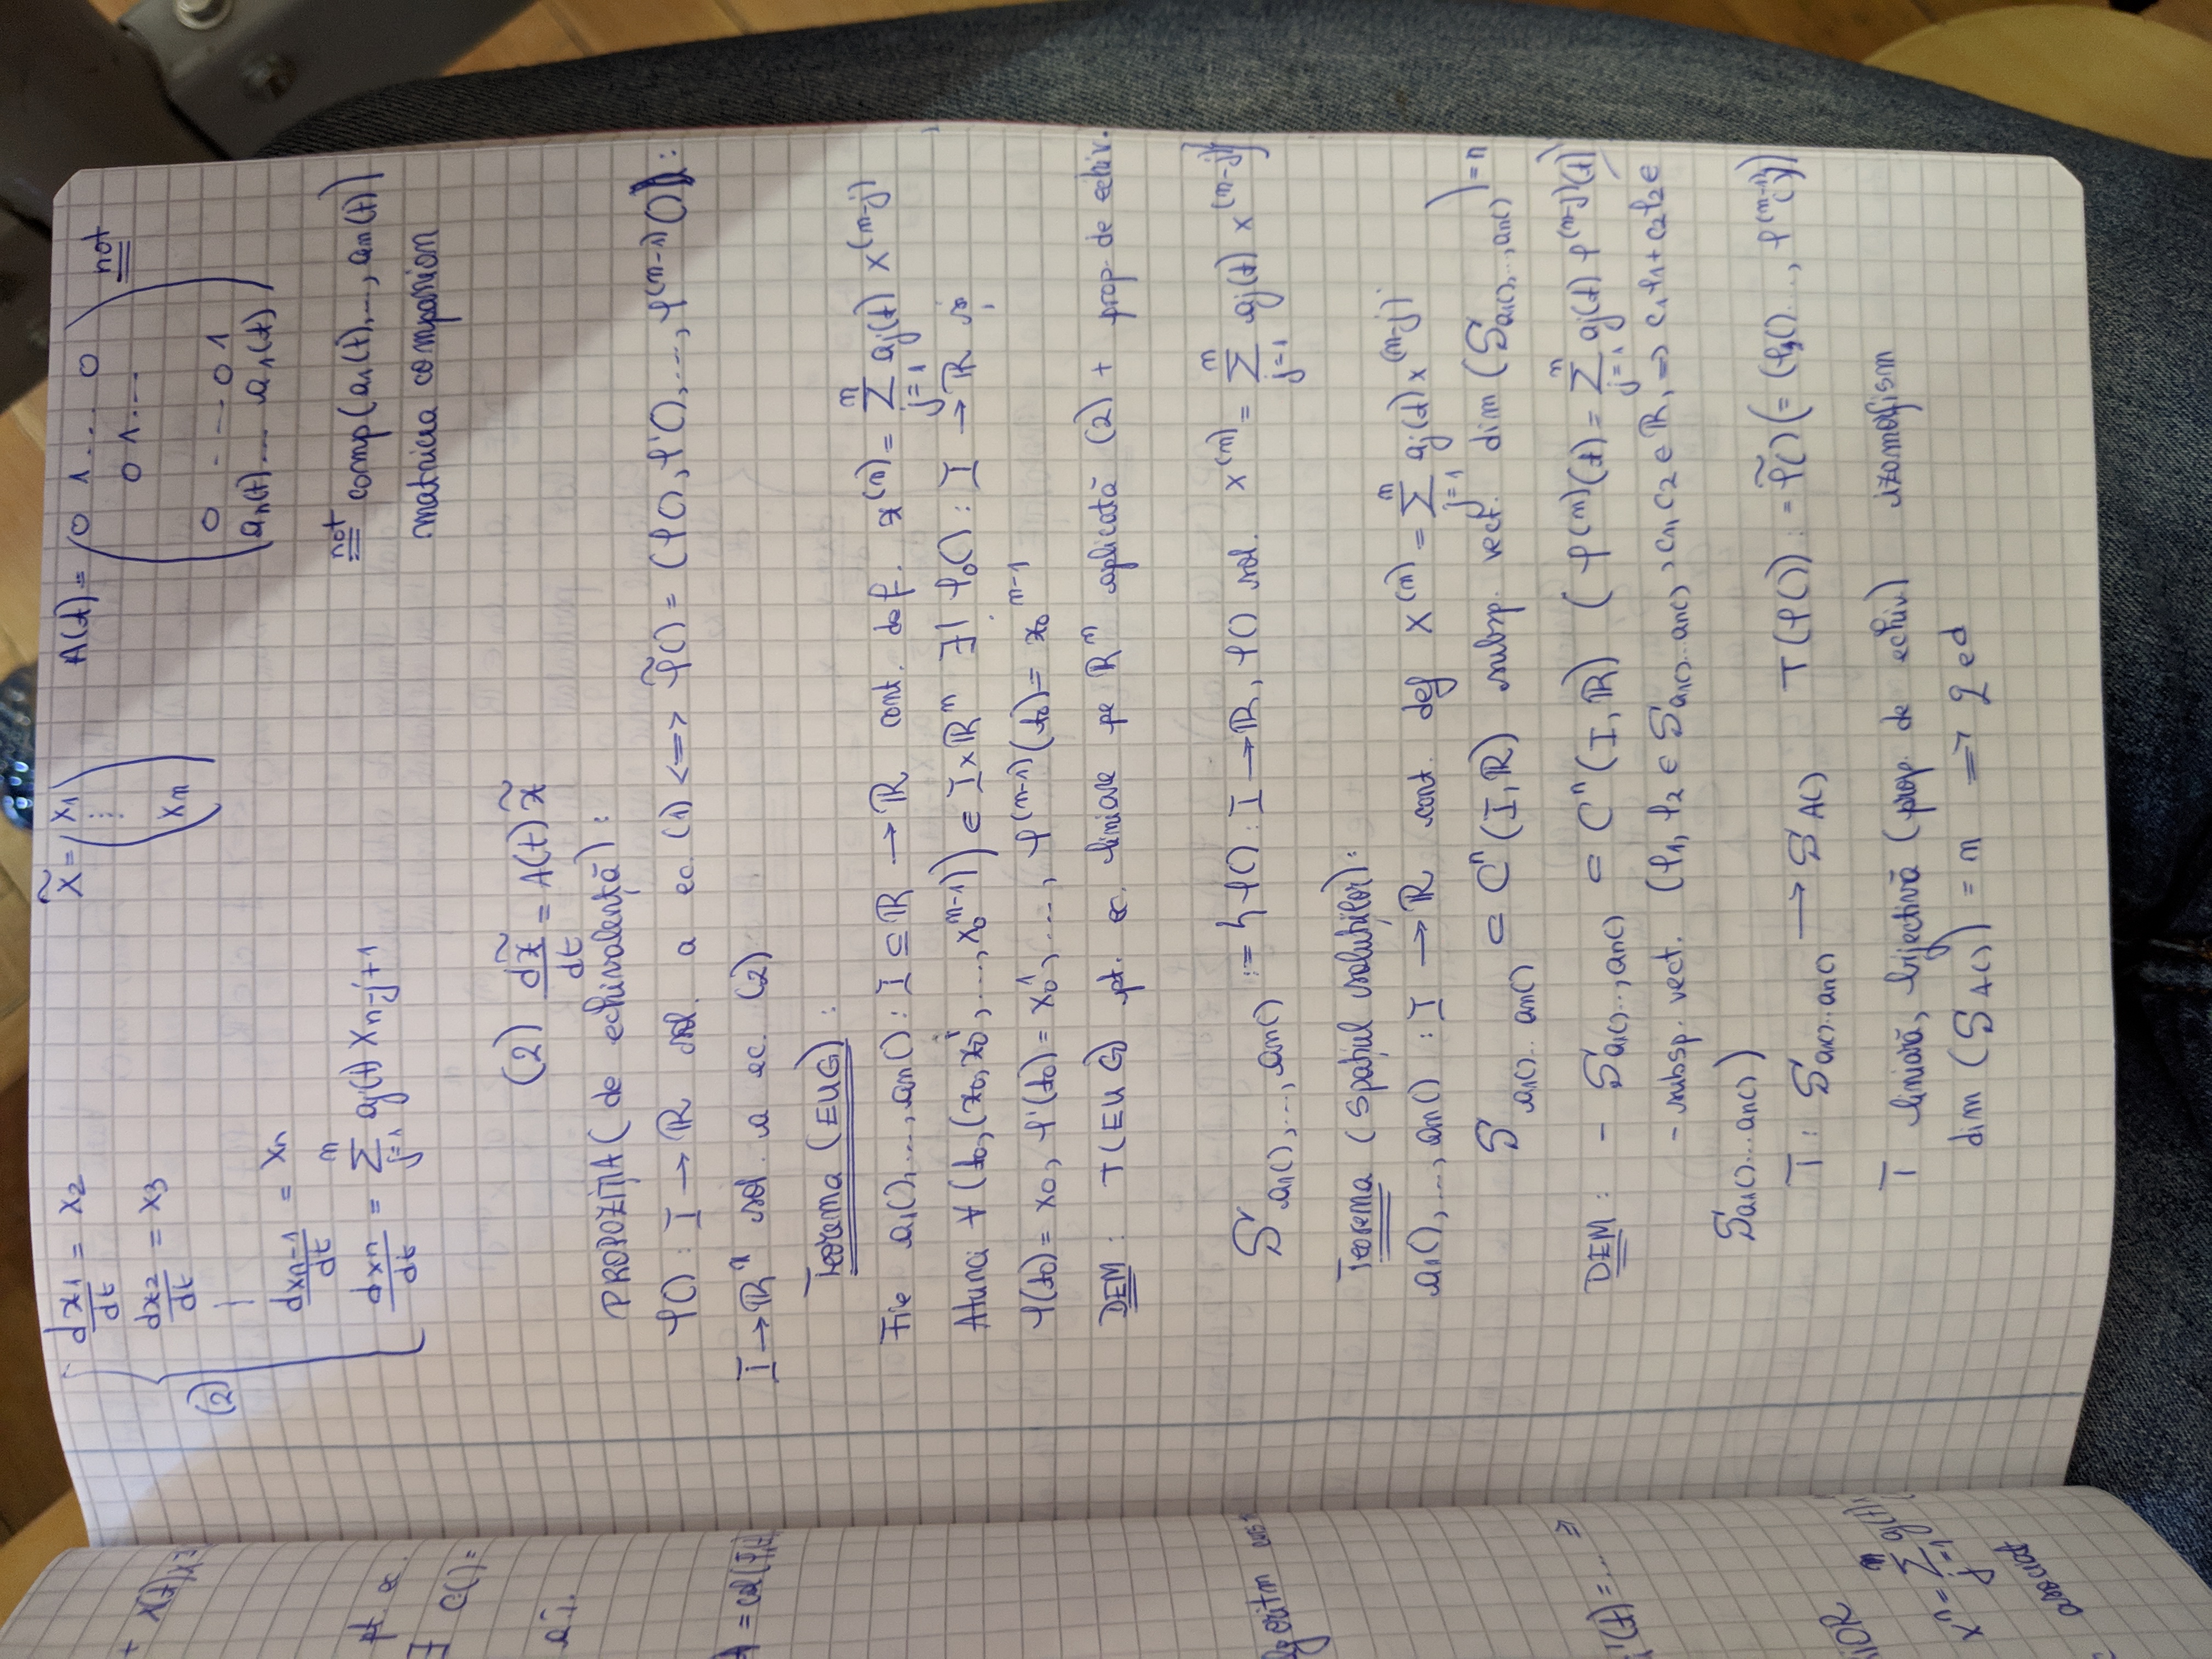 + x(t)x
pt. ec.
∃ C()=
a.î.
= col(
algoritm curs
(t)=... ⇒
x^n = Σ_{j=1}^{n} aj(t)
asociat
(2) { dx1/dt = x2
dx2/dt = x3
⋮
dx_{n-1}/dt = xn
dxn/dt = Σ_{j=1}^{n} aj(t) x_{n-j+1}
x̃ = (x1 ⋮ xn)
A(t) = ( 0 1 ... 0
0 1 ...
0 - - 0 1
an(t) ... a1(t) ) not=
not= comp(a1(t), ..., an(t))
matricea companion
(2) dx̃/dt = A(t) x̃
PROPOZIȚIA (de echivalență) :
φ() : I → ℝ sol. a ec. (1) <=> φ̃() = (φ(), φ'(), ..., φ^(n-1)()) :
I → ℝ^n sol. a ec. (2)
Teorema (EUG) :
Fie a1(), ..., an() : I ⊆ ℝ → ℝ cont. def. x^(n) = Σ_{j=1}^{n} aj(t) x^(n-j)
Atunci ∀ (t0, (x0, x0^1, ..., x0^{n-1})) ∈ I × ℝ^n ∃! φ0() : I → ℝ și
φ(t0) = x0, φ'(t0) = x0^1, ..., φ^(n-1)(t0) = x0^{n-1}
DEM : T(EUG) pt. ec. liniare pe ℝ^n aplicată (2) + prop. de echiv.
S_{a1(), ..., an()} := { φ() : I → ℝ, φ() sol. x^(n) = Σ_{j=1}^{n} aj(t) x^(n-j) }
Teorema (Spațiul soluțiilor) :
a1(), ..., an() : I → ℝ cont. def x^(n) = Σ_{j=1}^{n} aj(t) x^(n-j)
S_{a1()...an()} ⊂ C^n(I, ℝ) subsp. vect. dim (S_{a1(), .., an()}) = n
DEM : - S_{a1()..., an()} ⊂ C^n(I, ℝ) ( φ^(n)(t) = Σ_{j=1}^{n} aj(t) φ^(n-j)(t)
- subsp. vect. (φ1, φ2 ∈ S_{a1()...an()}, c1, c2 ∈ ℝ, => c1φ1 + c2φ2 ∈
S_{a1()...an()} )
T : S_{a1()...an()} → S_{A()} T(φ()) := φ̃() (= (φ()..., φ^(n-1)()))
T liniară, bijectivă (prop. de echiv) izomorfism
dim (S_{A()}) = n => qed